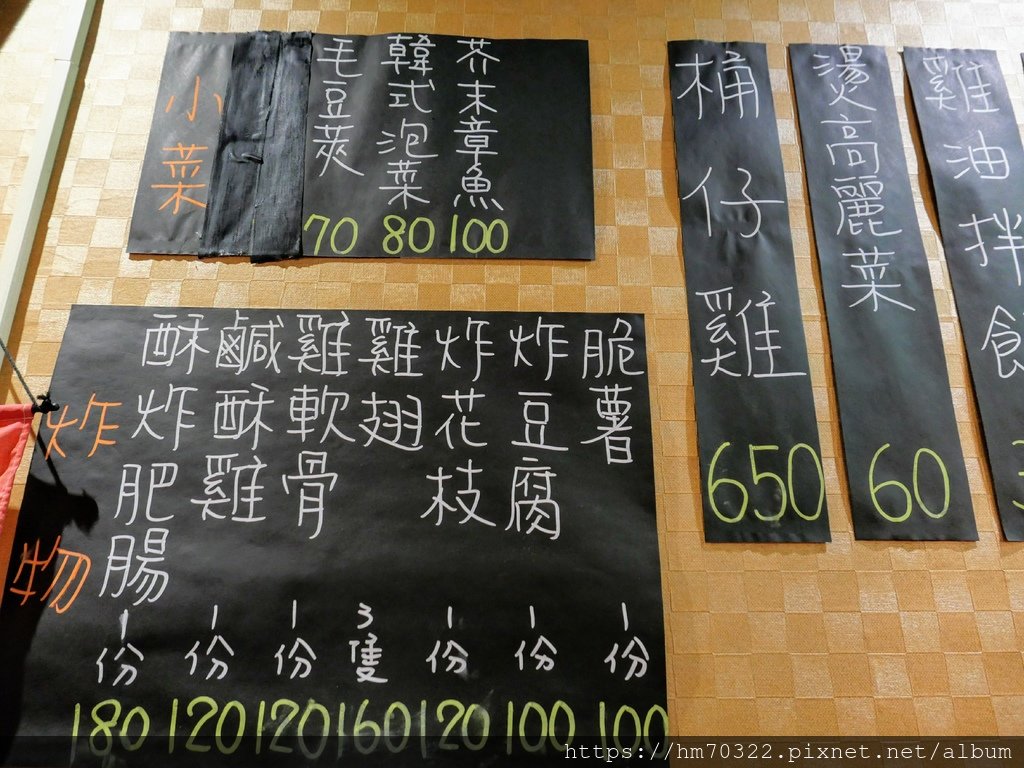 小菜
毛豆莢 70
韓式泡菜 80
芥末章魚 100
桶仔雞 650
燙高麗菜 60
雞油拌
炸物
酥炸肥腸 1份 180
鹹酥雞 1份 120
雞軟骨 1份 120
雞翅 3隻 160
炸花枝 1份 120
炸豆腐 1份 100
脆薯 1份 100
https://hm70322.pixnet.net/album